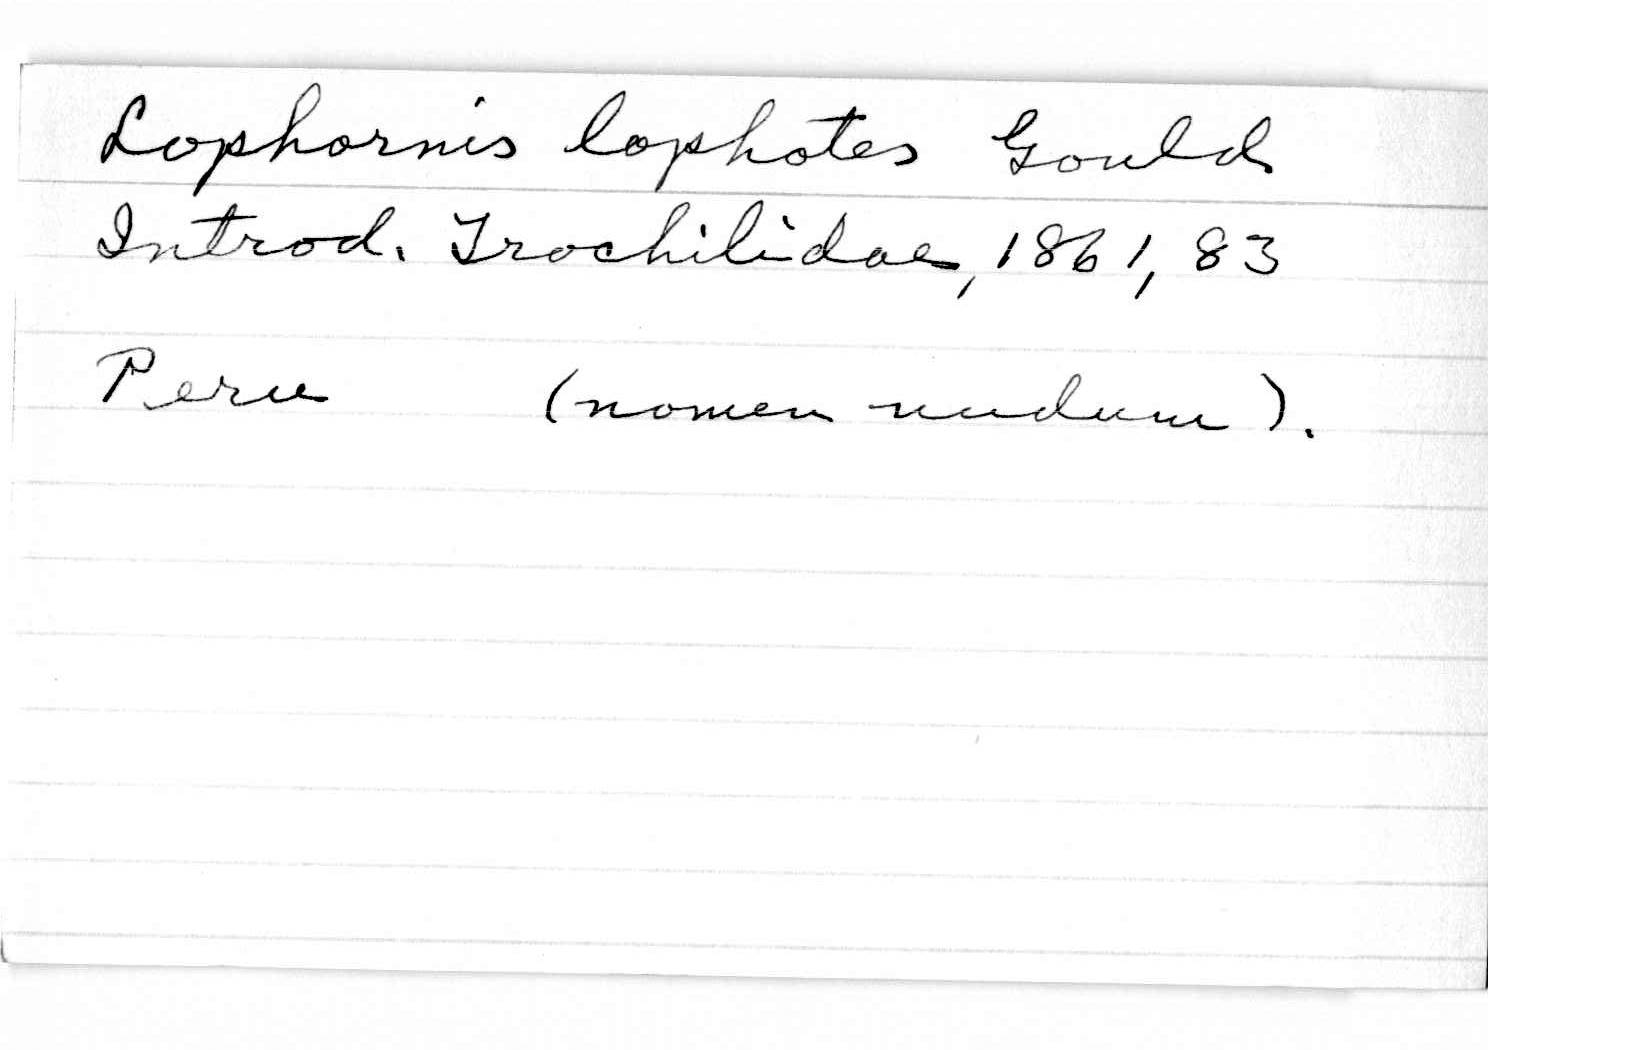 Lophornis lophotes Gould
Introd. Trochilidae, 1861, 83
Peru (nomen nudum).